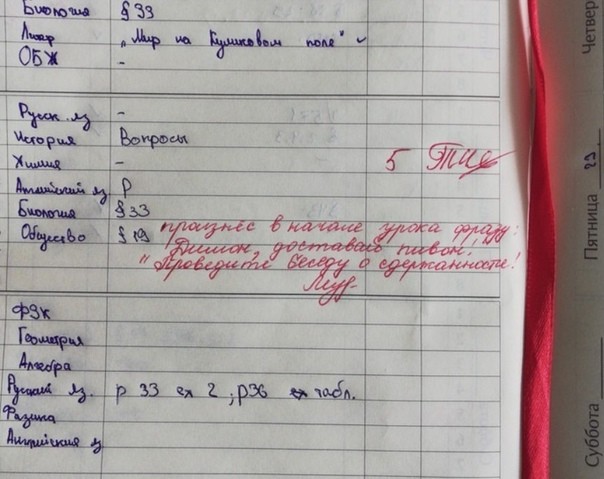 Биология § 33
Литер „Мир на Куликовом поле"
ОБЖ -
Четвер
Русск. яз -
История Вопросы
Химия -
5
Английский яз Р
Биология § 33
Общество § 19
произнёс в начале урока фразу:
Димон, доставай пивон!
"Проведите беседу о сдержанности!
Пятница 29
ФЗК
Геометрия
Алгебра
Русский яз. р 33 2, р36 табл.
Физика
Английский яз
Суббота